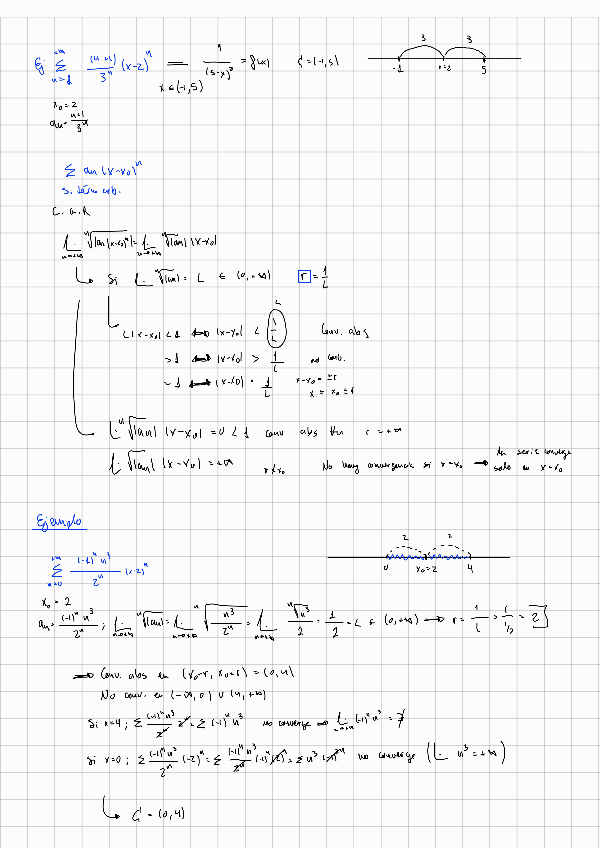 Ej Σ_{n=1}^{+∞} (n+1)/3^n (x-2)^n = 9/(5-x)^2 = f(x) C = (-1,5)
x ∈ (-1,5)
3 3
-1 x=2 5
x_0 = 2
a_n = (n+1)/3^n
Σ a_n (x-x_0)^n
S. térm arb.
C. G. R
Lim_{n→+∞} ⁿ√|a_n (x-x_0)^n| = Lim_{n→+∞} ⁿ√|a_n| |x-x_0|
Si Lim ⁿ√|a_n| = L ∈ (0,+∞) r = 1/L
L|x-x_0| < 1 ⟺ |x-x_0| < 1/L Conv. abs
> 1 ⟺ |x-x_0| > 1/L no conv.
= 1 ⟺ |x-x_0| = 1/L x-x_0 = ±r
x = x_0 ± r
Lim ⁿ√|a_n| |x-x_0| = 0 < 1 conv abs r = +∞
Lim ⁿ√|a_n| |x-x_0| = +∞ x ≠ x_0 No hay convergencia si x = x_0 → la serie converge
solo en x = x_0
Ejemplo
2 2
0 x_0=2 4
Σ_{n=0}^{+∞} (-1)^n n^3/2^n (x-2)^n
x_0 = 2
a_n = (-1)^n n^3/2^n ; Lim_{n→+∞} ⁿ√|a_n| = Lim_{n→+∞} ⁿ√(n^3/2^n) = Lim_{n→+∞} ⁿ√n^3/2 = 1/2 = L ∈ (0,+∞) → r = 1/L = 1/(1/2) = 2
⇒ Conv. abs en (x_0-r, x_0+r) = (0,4)
No conv. en (-∞,0) ∪ (4,+∞)
Si x=4; Σ (-1)^n n^3/2^n 2^n = Σ (-1)^n n^3 no converge ⇒ Lim_{n→+∞} (-1)^n n^3 = ∄
Si x=0; Σ (-1)^n n^3/2^n (-2)^n = Σ (-1)^n n^3/2^n (-1)^n (2)^n = Σ n^3 (-1)^{2n} no converge (Lim n^3 = +∞)
C = (0,4)